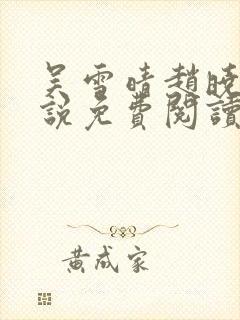 吴雪晴趙曉
說免費閱讀
黄成家